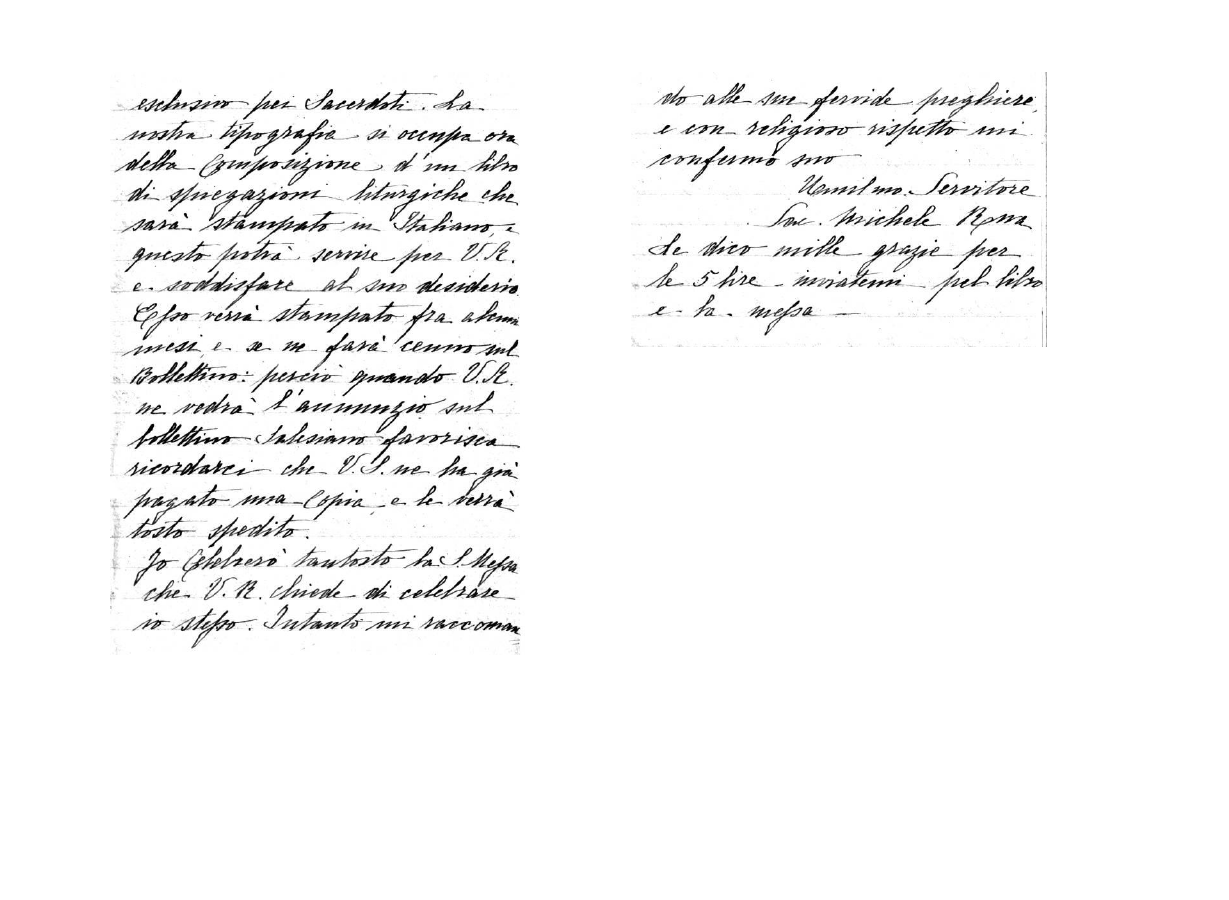 esclusivo pei Sacerdoti. La
nostra tipografia si occupa ora
della Composizione d'un libro
di spiegazioni liturgiche che
sarà stampato in Italiano, e
questo potrà servire per V. R.
e soddisfare al suo desiderio.
Esso verrà stampato fra alcuni
mesi, e se ne farà cenno sul
Bollettino: perciò quando V. R.
ne vedrà l'annunzio sul
bollettino Salesiano favorisca
ricordarci che V. S. ne ha già
pagato una Copia, e le verrà
tosto spedito.
Io Celebrerò tantosto la S. Messa
che V. R. chiede di celebrare
io stesso. Intanto mi raccoman
do alle sue fervide preghiere,
e con religioso rispetto mi
confermo suo
Umilmo. Servitore
Sac. Michele Rua
Le dico mille grazie per
le 5 lire inviatemi pel libro
e la messa —